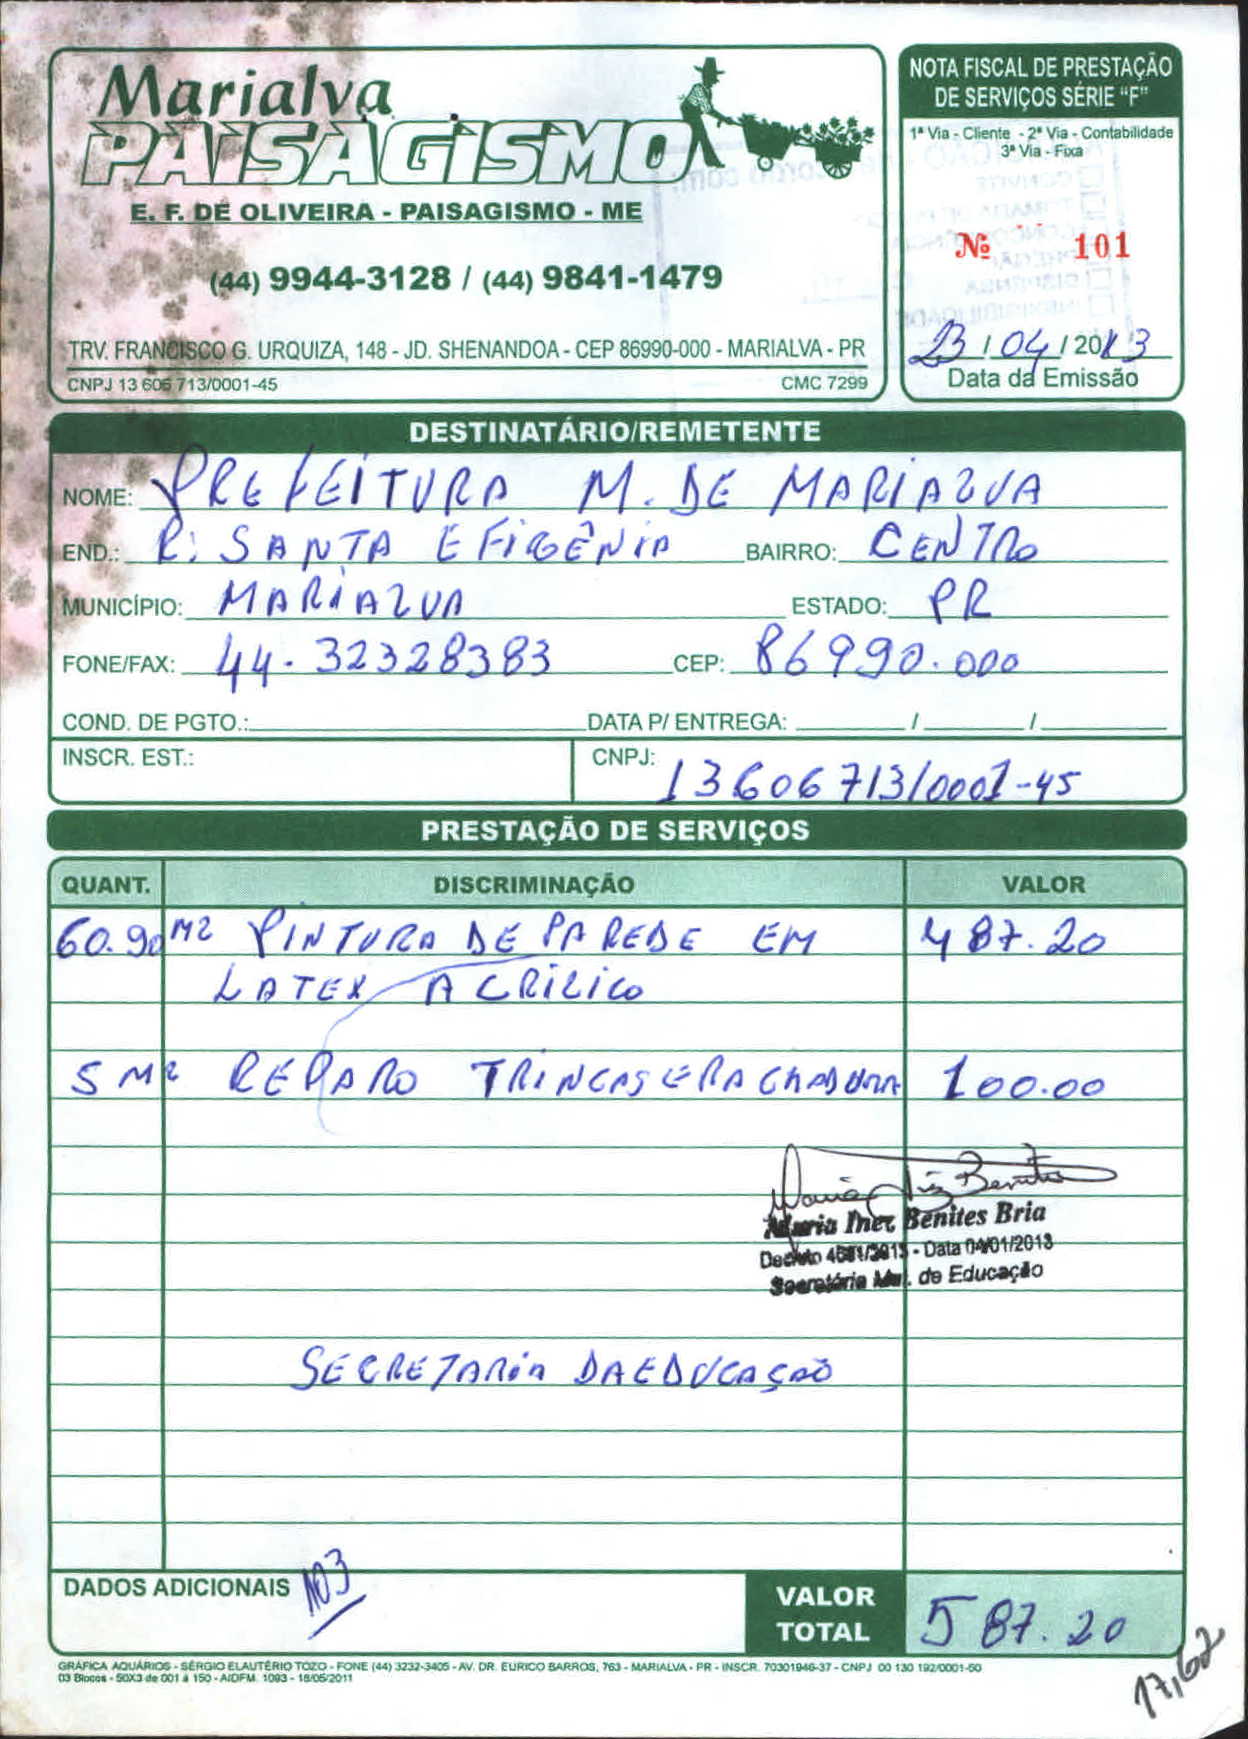 Marialva
PAISAGISMO
E. F. DE OLIVEIRA - PAISAGISMO - ME
(44) 9944-3128 / (44) 9841-1479
TRV. FRANCISCO G. URQUIZA, 148 - JD. SHENANDOA - CEP 86990-000 - MARIALVA - PR
CNPJ 13 606 713/0001-45 CMC 7299
NOTA FISCAL DE PRESTAÇÃO
DE SERVIÇOS SÉRIE "F"
1ª Via - Cliente - 2ª Via - Contabilidade
3ª Via - Fixa
Nº 101
23 / 04 / 2013
Data da Emissão
DESTINATÁRIO/REMETENTE
NOME: PREFEITURA M. DE MARIALVA
END.: R: SANTA EFIGÊNIA BAIRRO: CENTRO
MUNICÍPIO: MARIALVA ESTADO: PR
FONE/FAX: 44. 32328383 CEP: 86990.000
COND. DE PGTO.: DATA P/ ENTREGA: / /
INSCR. EST.: CNPJ: 13606713/0001-45
PRESTAÇÃO DE SERVIÇOS
QUANT. DISCRIMINAÇÃO VALOR
60.90 M2 PINTURA DE PAREDE EM 487.20
LATEX ACRILICO
5 M2 REPARO TRINCAS E RACHADURA 100.00
Maria Inez Benites Bria
Decreto 4581/2013 - Data 04/01/2013
Secretária Mul. de Educação
SECRETARIA DA EDUCAÇÃO
DADOS ADICIONAIS 103
VALOR
TOTAL 587.20
17,62
GRÁFICA AQUÁRIOS - SÉRGIO ELAUTÉRIO TOZO - FONE (44) 3232-3405 - AV. DR. EURICO BARROS, 763 - MARIALVA - PR - INSCR. 70301946-37 - CNPJ 00 130 192/0001-50
03 Blocos - 50X3 de 001 à 150 - AIDFM. 1093 - 18/05/2011